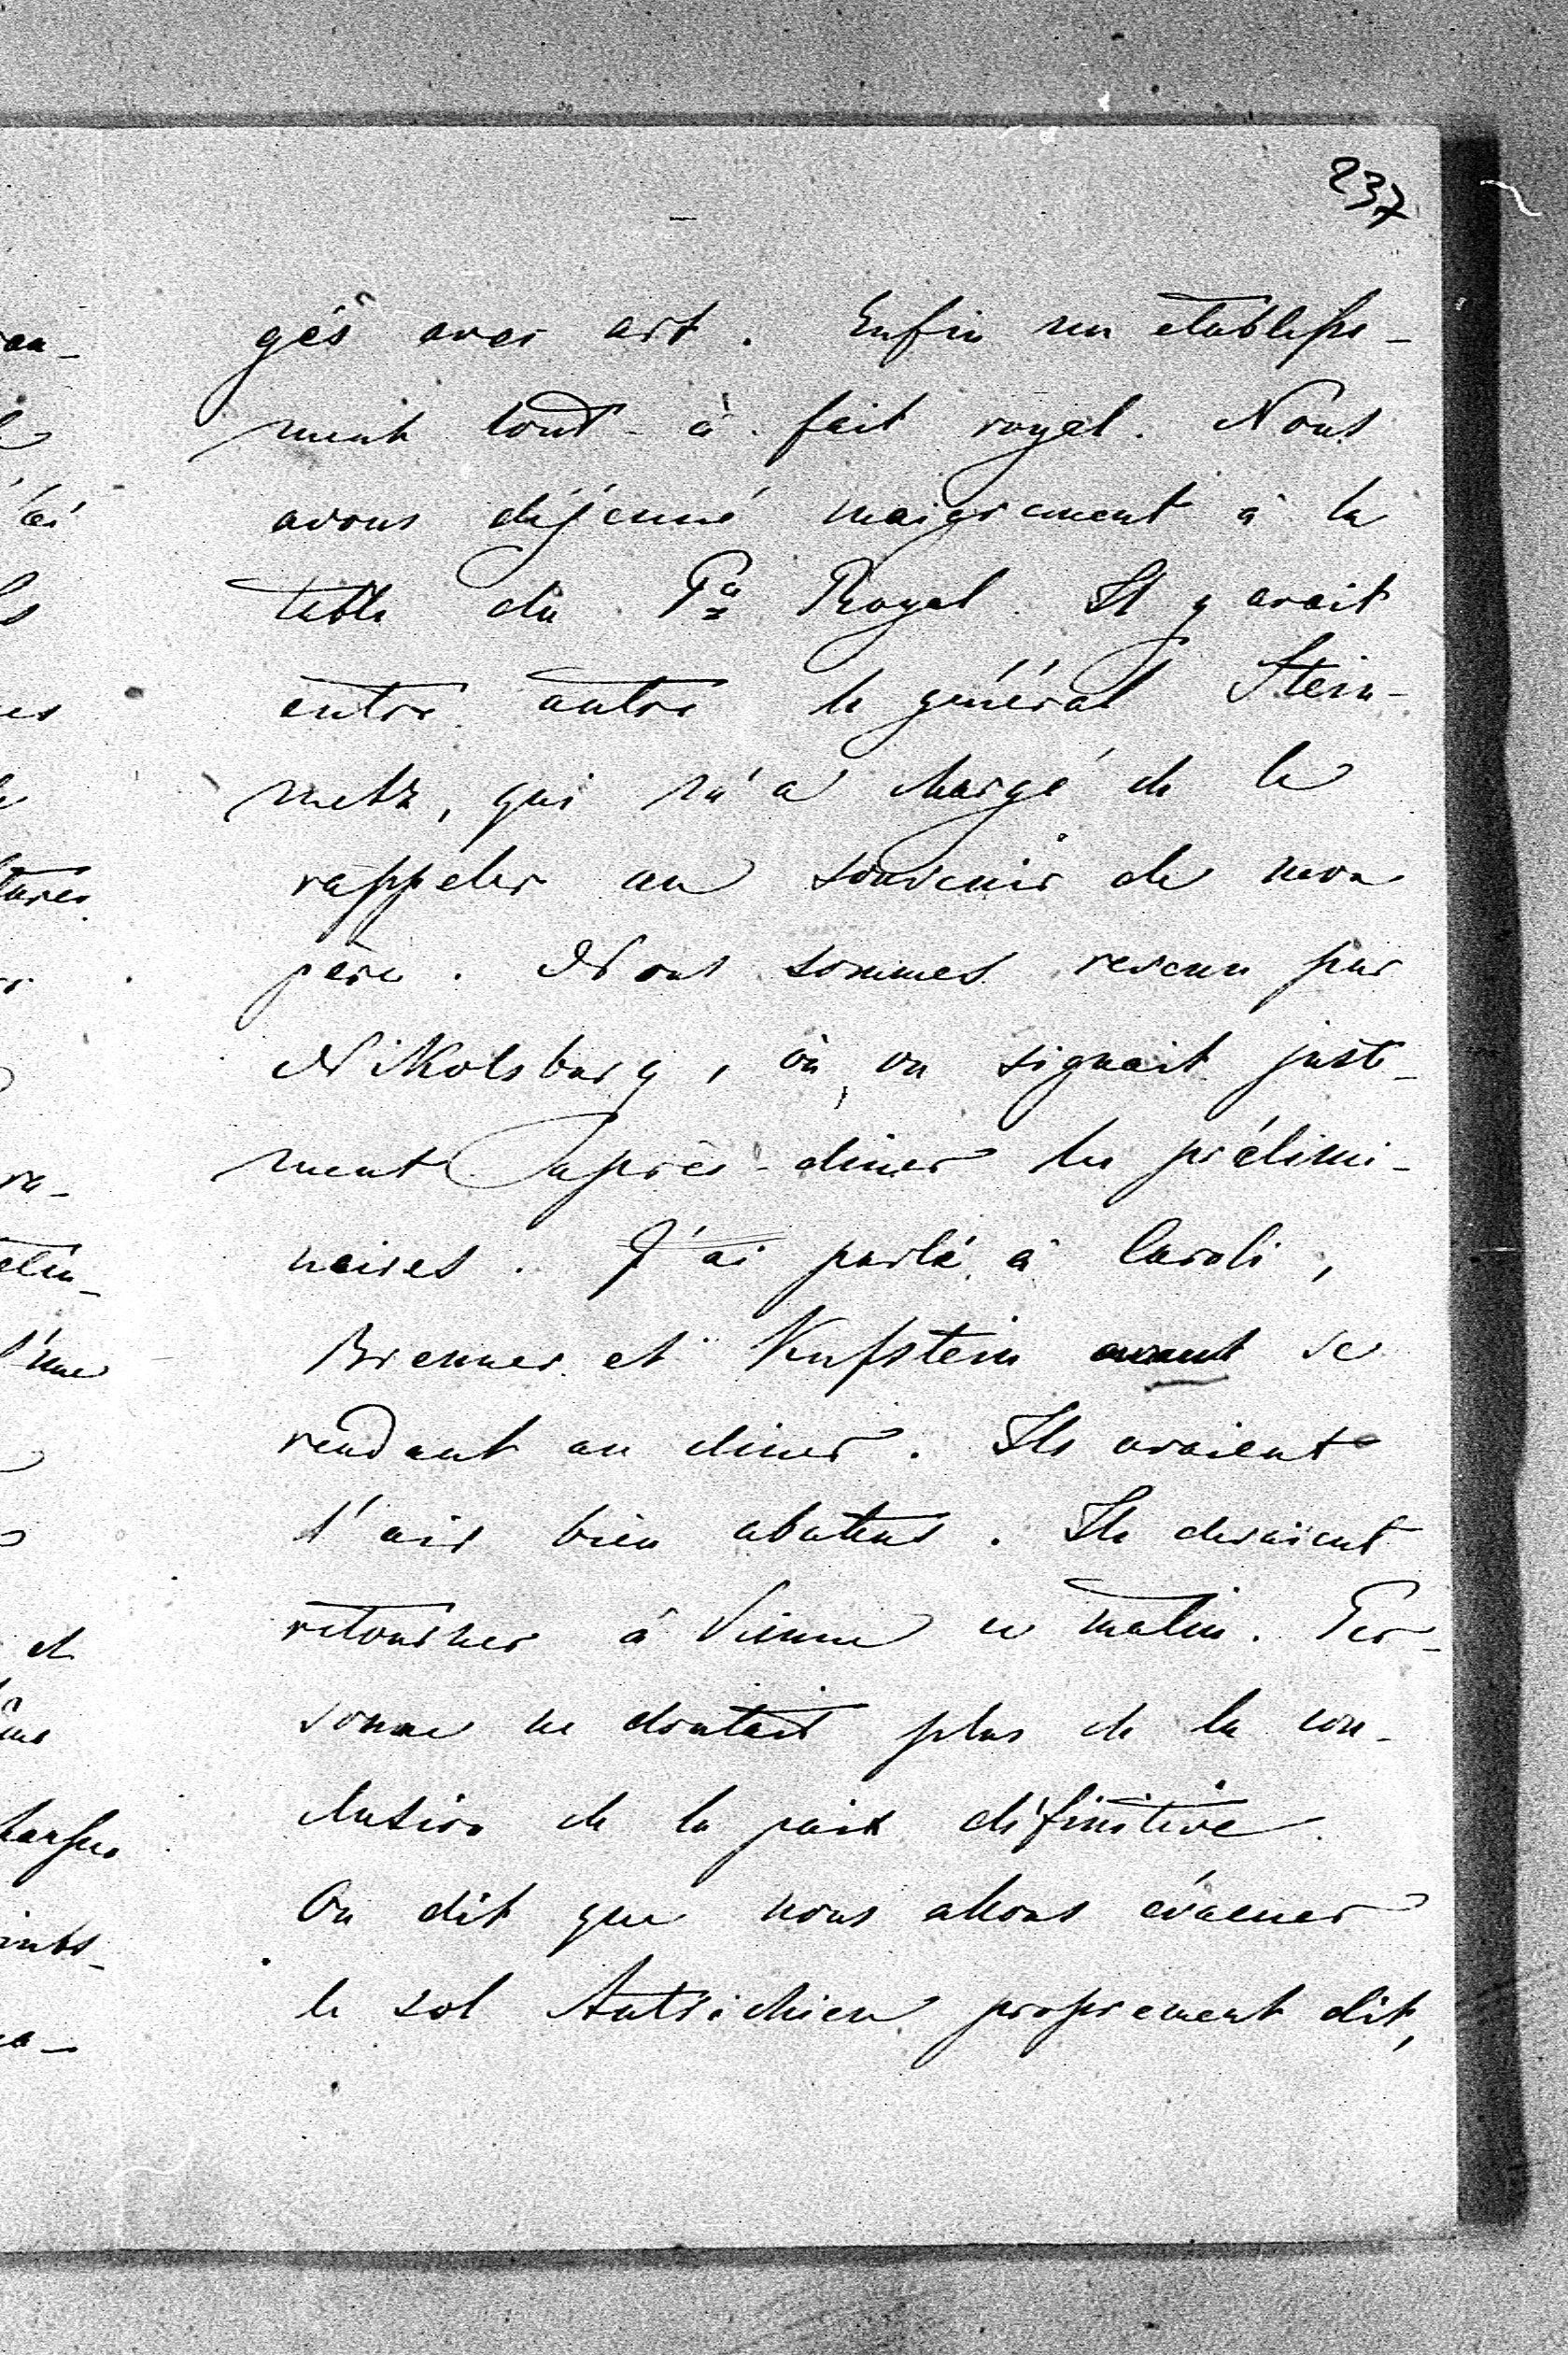 237
gés avec art. Enfin un etablisse-
ment tout-à-fait royal. Nous
avons déjeuné maigrement à la
table du Pce Royal. Il y avait
entre autre le général Stein-
metz, qui m'a chargé de le
rappeler au souvenir de mon
père. Nous sommes revenu par
Nikolsburg, où on signait juste-
ment après-diner les prélimi-
naires. J'ai parlé à Caroli,
Brenner et Kufstein se
rendant au diner. Ils avaient
l'air bien abatus. Ils devaient
retourner à Vienne ce matin. Per-
sonne ne doutait plus de la con-
clusion de la paix définitive.
On dit que nous allons évacuer
le sol Autrichien proprement dit,